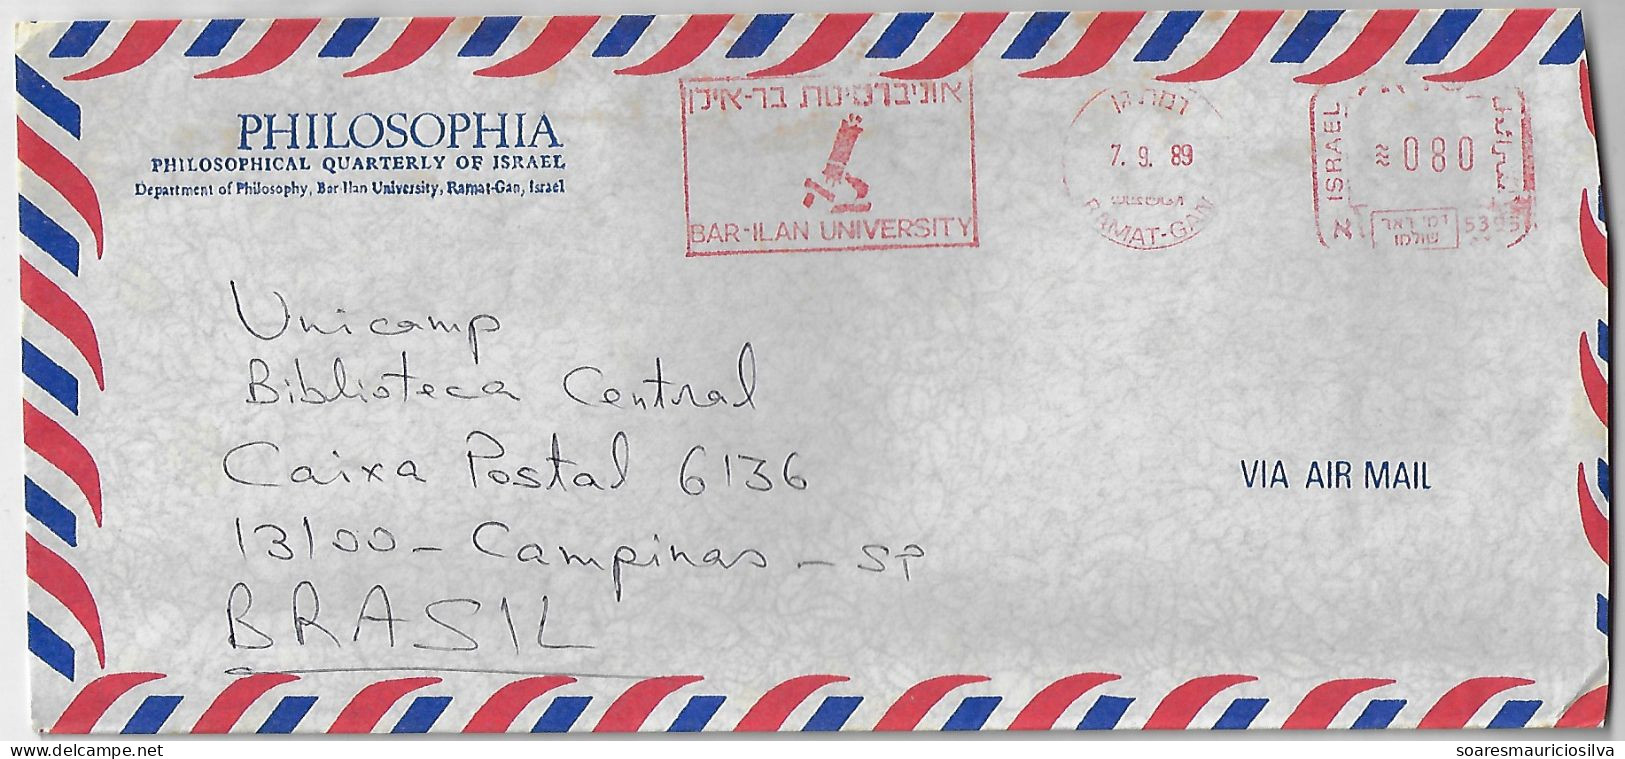 PHILOSOPHIA
PHILOSOPHICAL QUARTERLY OF ISRAEL
Department of Philosophy, Bar-Ilan University, Ramat-Gan, Israel
אוניברסיטת בר-אילן
BAR-ILAN UNIVERSITY
רמת גן
7. 9. 89
RAMAT-GAN
ISRAEL
080
א
דמי דאר
שולמו
5395
Unicamp
Biblioteca Central
Caixa Postal 6136
13100 - Campinas - SP
BRASIL
VIA AIR MAIL
delcampe.net
soaresmauriciosilva